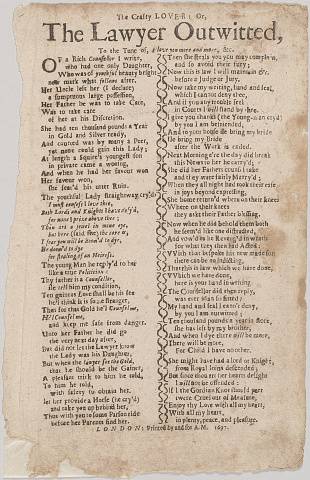 The Crafty LOVER; Or,
The Lawyer Outwitted,
To the Tune of, I love you more and more, &c.
OF a Rich Counsellor I write,
who had one only Daughter,
Who was of youthful beauty bright
now mark what follows after.
Her Uncle left her (I declare)
a sumptuous large possession,
Her Father he was to take Care,
Was to take care
of her at his Discretion.
She had ten thousand pounds a Year
in Gold and Silver ready,
And courted was by many a Peer,
yet none could gain this Lady;
At length a Squire's youngest son
in private came a wooing,
And when he had her favour won
Her favour won,
she fear'd his utter Ruin.
The youthful Lady straightway cry'd
I must confess I love thee,
Both Lords and Knights I have deny'd,
for none I prize above thee;
Thou art a jewel in mine eye,
but here (said she) the care is,
I fear you will be doom'd to dye,
Be doom'd to dye
for stealing of an Heiress.
The young Man he reply'd to her
like a true Politician:
Thy father is a Counsellor,
ile tell him my condition,
Ten guineas Love shall be his fee
he'l think it is some stranger,
Then for that Gold he'l Counsel me,
He'l Counsel me,
and keep me safe from danger.
Unto her Father he did go
the very next day after,
But did not let the Lawyer know
the Lady was his Daughter,
But when the lawyer see the Gold,
that he should be the Gainer,
A pleasant trick to him he told,
To him he told,
with safety to obtain her.
let her provide a Horse (he cry'd)
and take you up behind her,
Then with you to some Parson ride
before her Parents find her.
Then she steals you you may complain,
and so avoid their fury;
Now this is law I will maintain &c.
before a Judge or Jury.
Now take my writing, hand and seal,
which I cannot deny thee,
And if you any trouble feel
in Court I will stand by thee.
I give you thanks (the Young-man cry'd)
by you I am befriended,
And to your house ile bring my bride
Ile bring my Bride
after the Work is ended.
Next Morning e're the day did break
this News to her he carry'd;
She did her Fathers councel take
and they were fairly Marry'd;
When they all night had took their ease
in joys beyond expressing,
She home return'd where on their knees
Where on their knees
they askt their Father blessing.
Now when he did behold them both
he seem'd like one distracted,
And vow'd to be Reveng'd in wrath
for what they then had Acted.
With that bespoke his new made son
there can be no indicting,
That this is law which we have done,
Which we have done,
here is your hand in writing.
The Counsellor did then reply,
was ever Man so fitted;
My hand and seal I can't deny,
by you I am outwitted;
Ten thousand pounds a year in store,
she has left by my brother,
And when I dye there will be more,
There will be more,
for Child I have no other.
She might have had a lord or Knight,
from Royal loins descended;
But since thou art her hearts delight
I will not be offended:
If I the Gordian Knot should part
twere Cruel out of Measure,
Enjoy thy Love with all my heart,
With all my heart,
in plenty, peace, and pleasure.
LONDON; Printed by and for A.M. 1697.